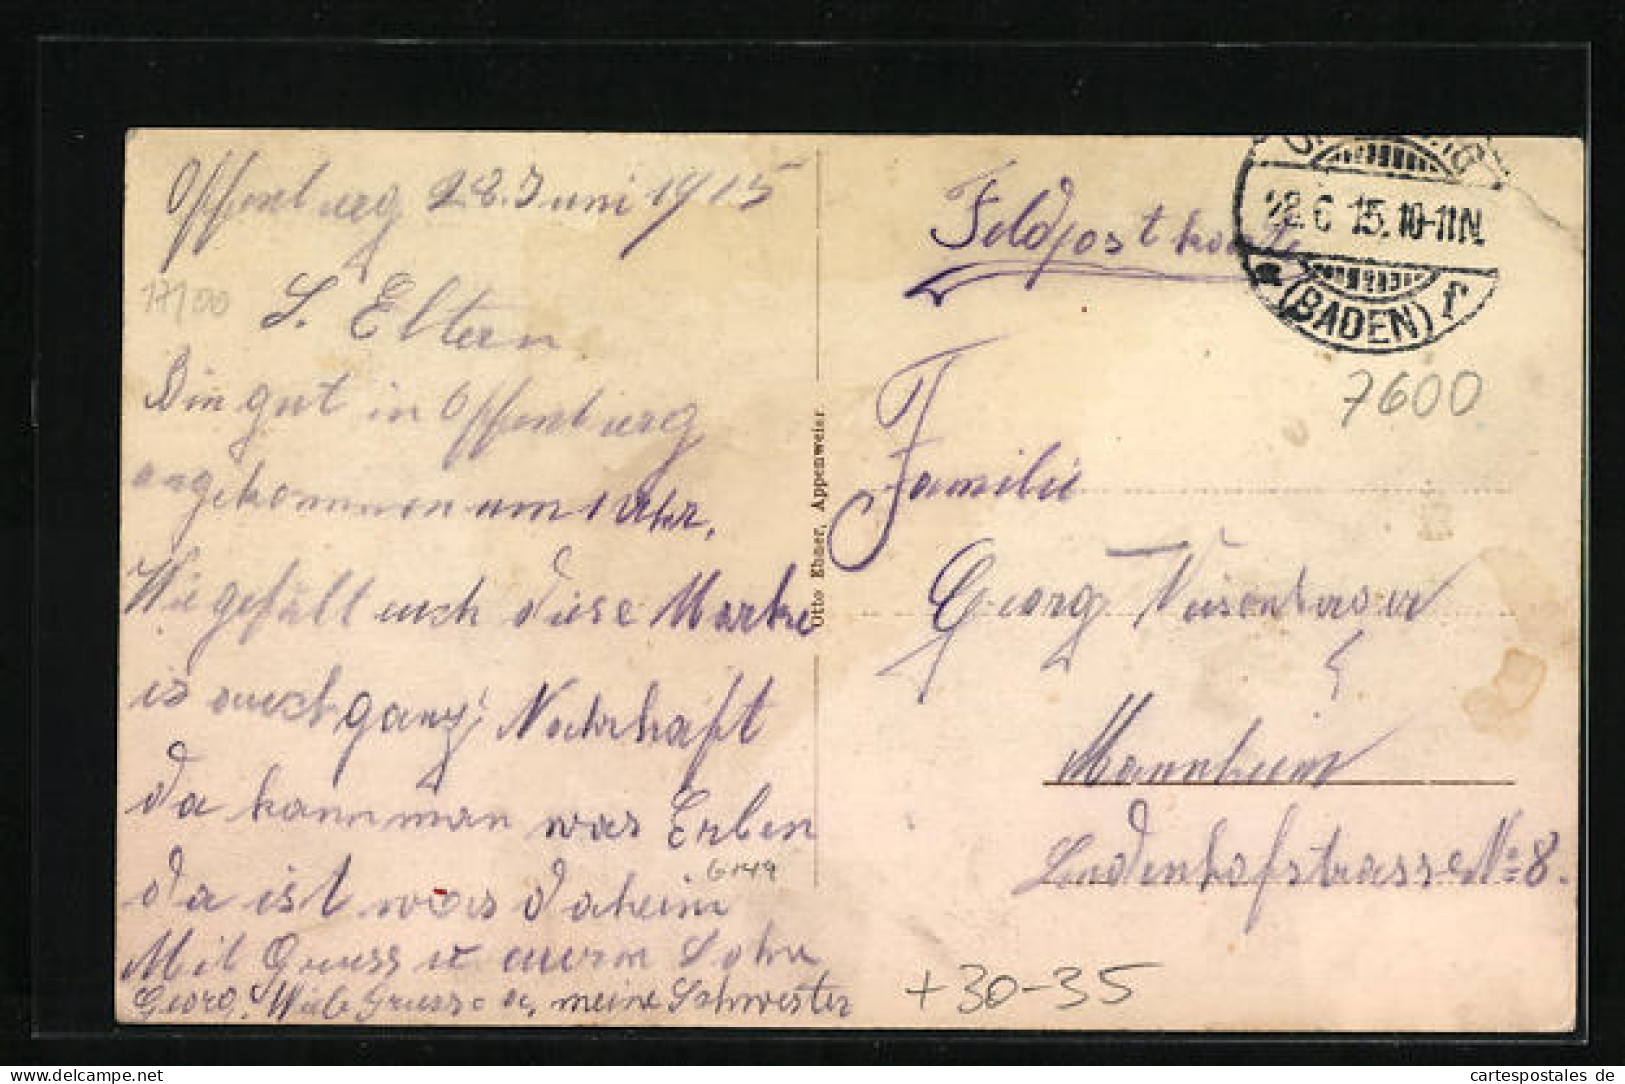 Offenburg 28. Juni 1915
17/00
L. Eltern
Bin gut in Offenburg
angekommen um 1 Uhr.
Wie gefällt euch diese Marke
is auch ganz Nahrhaft
da kann man was Erben
G149
da ist was daheim
Mit Gruss v. eurem Sohn
Georg. Viele Grüsse an meine Schwester
Otto Ebner, Appenweier.
Feldpostkarte
28.6.15.10-11N.
(BADEN) f
7600
Familie
Georg
Mannheim
Lindenhofstrasse No 8.
+30-35
www.cartespostales.de